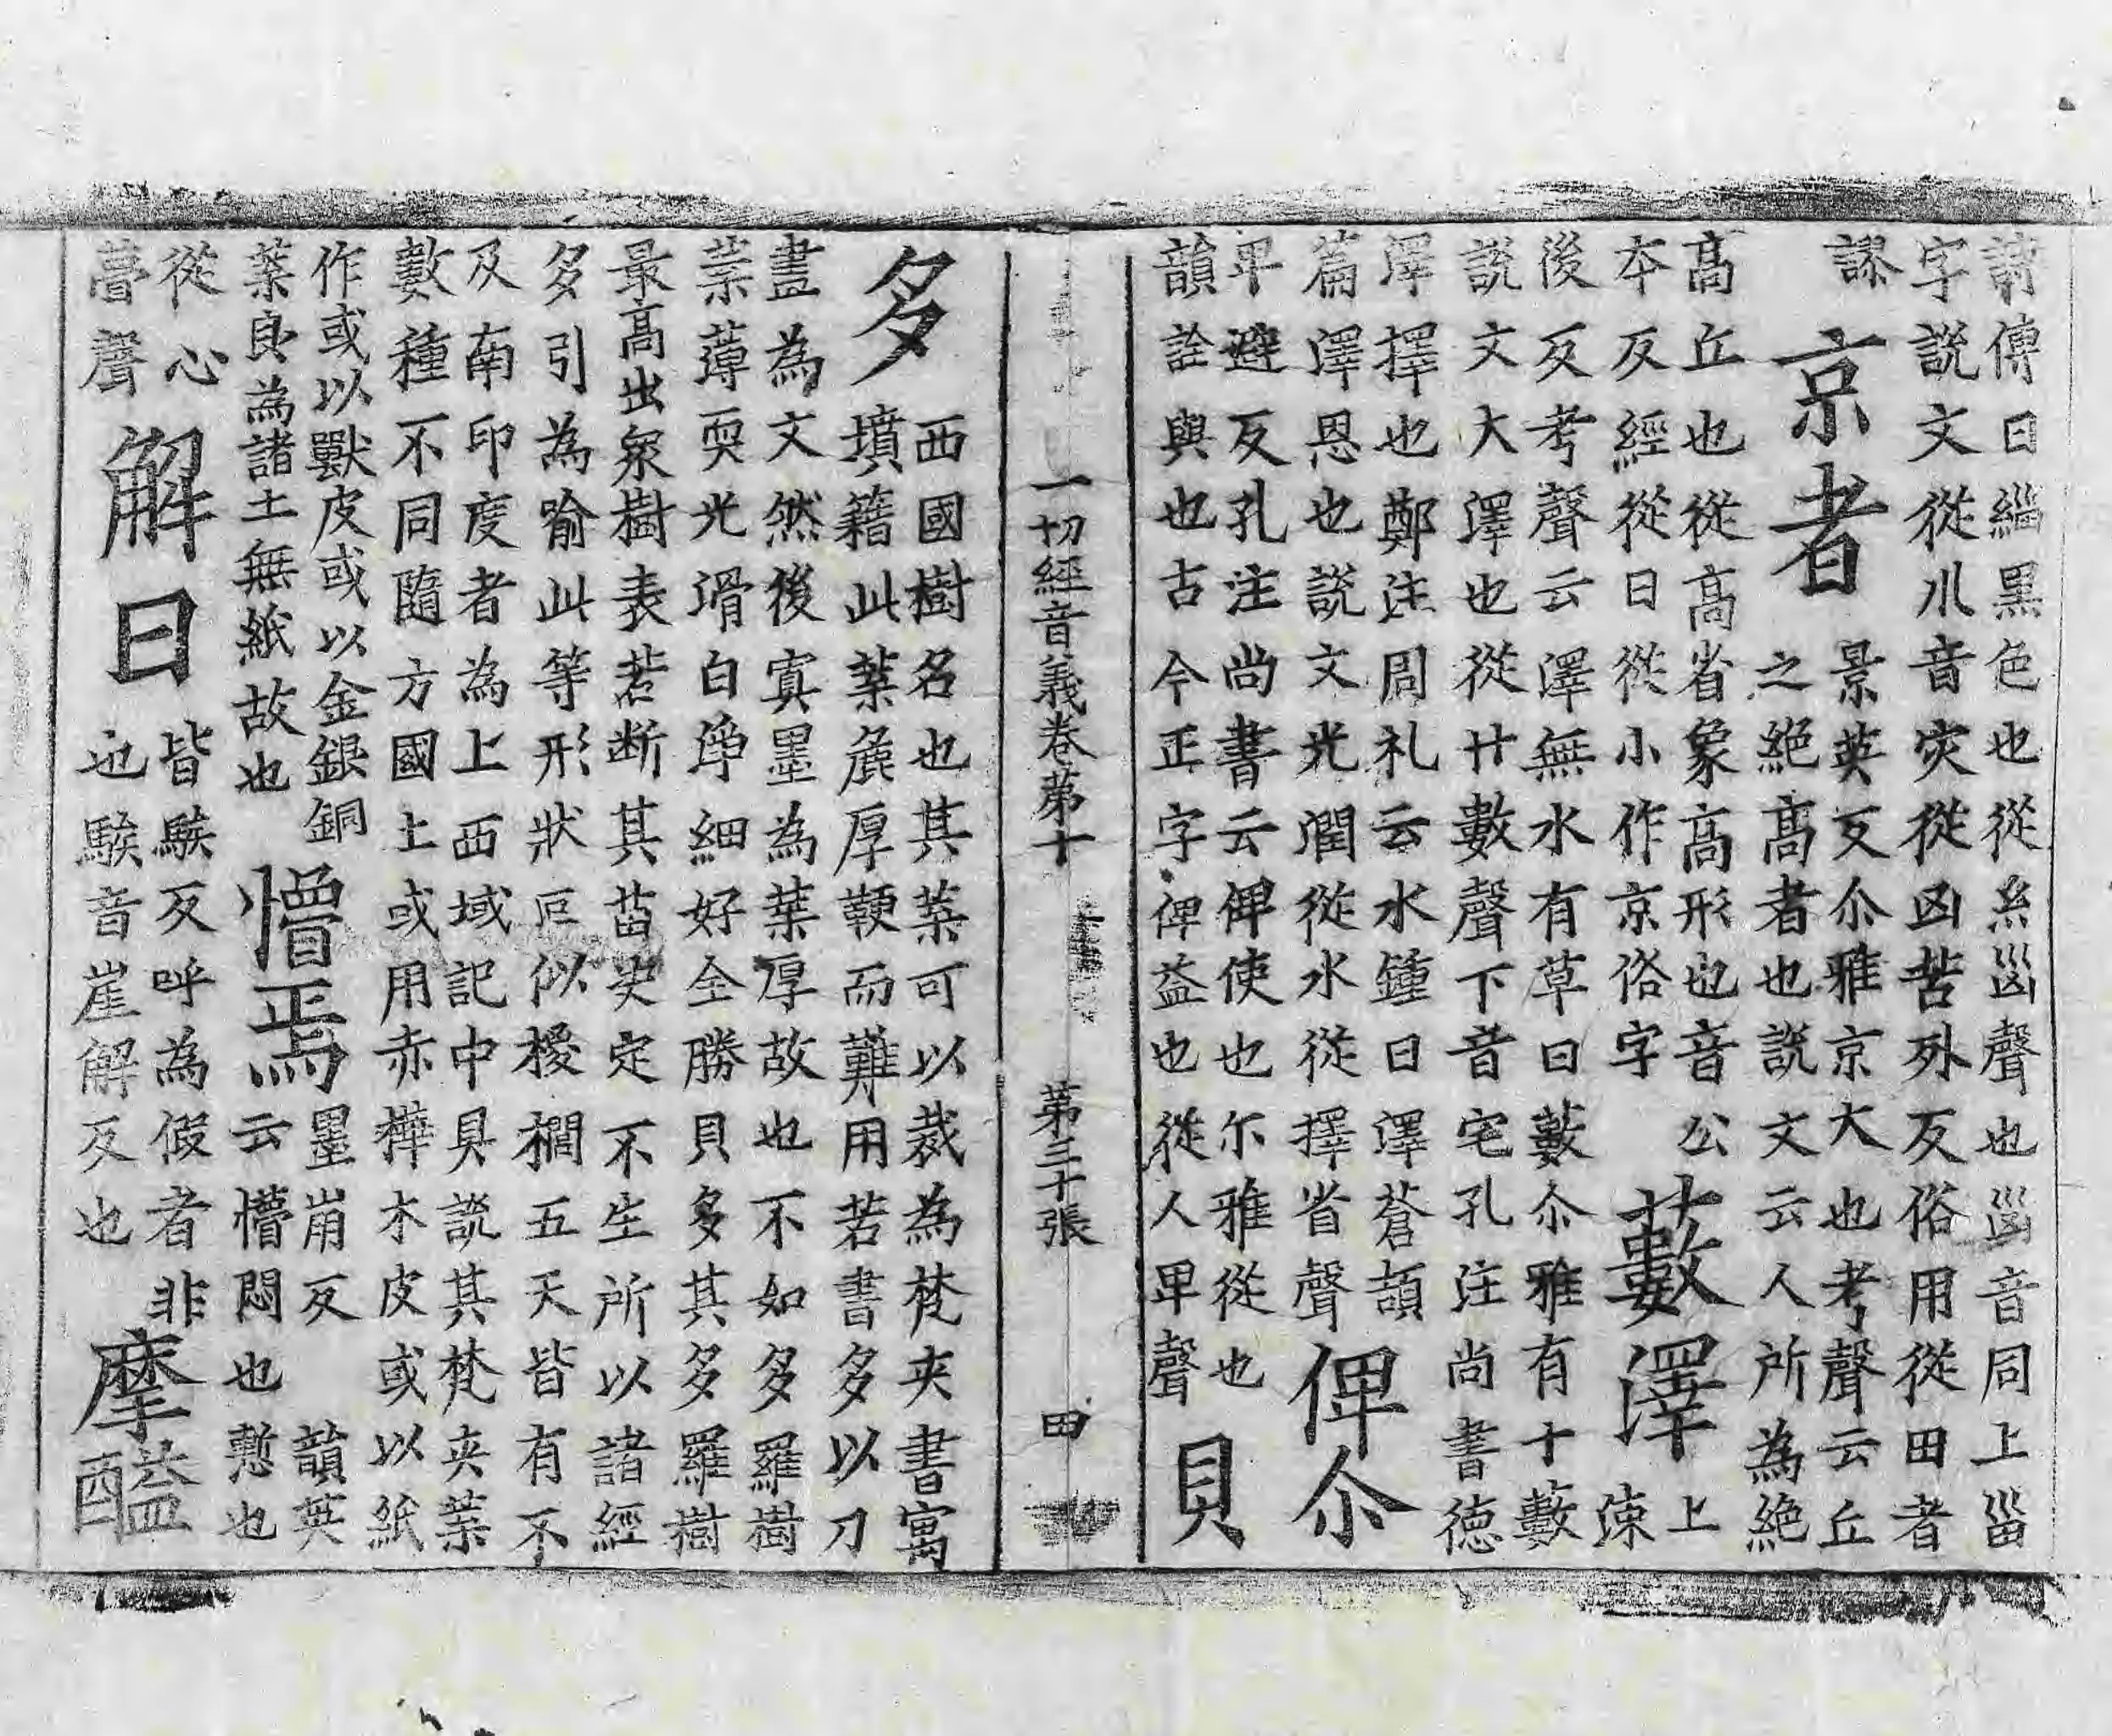 詩傳曰緇黑色也從糸甾聲也甾音同上甾
字說文從巛音灾從凶苦外反俗用從田者
謬
京者
景英反尒雅京大也考聲云丘
之絕高者也說文云人所為絕
高丘也從高省象高形也音公
本反經從日從小作京俗字
藪澤
上
涑
後反考聲云澤無水有草曰藪尒雅有十藪
說文大澤也從廾數聲下音宅孔注尚書德
澤擇也鄭注周礼云水鍾曰澤蒼頡
篇澤恩也說文光潤從水從擇省聲
俾尒
卑避反孔注尚書云俾使也尒雅從也
韻詮與也古今正字俾益也從人卑聲
貝
一切經音義卷第十 第三十張 田
多
西國樹名也其葉可以裁為梵夾書寫
墳籍此葉麁厚鞕而難用若書多以刀
畫為文然後寘墨為葉厚故也不如多羅樹
葉薄耎光滑白淨細好全勝貝多其多羅樹
最高出衆樹表若断其苗決定不生所以諸經
多引為喻此等形狀叵似椶櫚五天皆有不
及南印度者為上西域記中具說其梵夾葉
數種不同隨方國土或用赤樺木皮或以紙
作或以獸皮或以金銀銅
葉良為諸土無紙故也
懵焉
墨崩反韻英
云懵悶也慙也
從心
瞢聲
解曰
皆騃反呼為假者非
也騃音崖解反也
摩醯